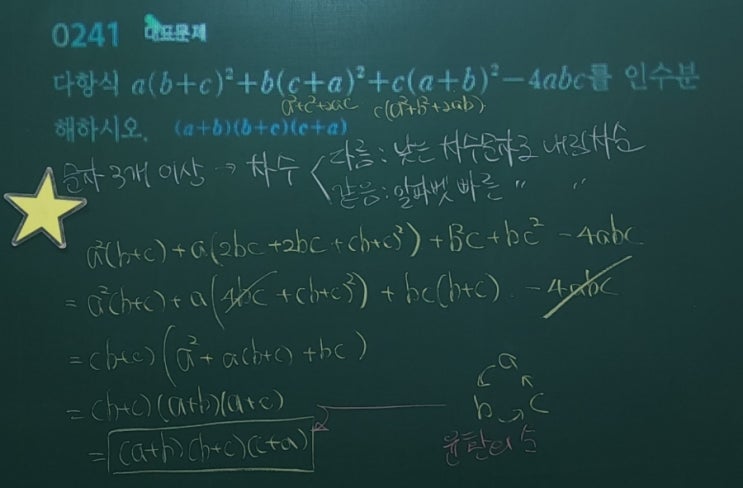 0241 대표문제
다항식 a(b+c)²+b(c+a)²+c(a+b)²-4abc를 인수분
a²+c²+2ac c(a²+b²+2ab)
해하시오. (a+b)(b+c)(c+a)
문자 3개 이상 → 차수 < 다름: 낮은 차수문자로 내림차순
같음: 알파벳 빠른 〃 〃
a²(b+c)+a(2bc+2bc+(b+c)²)+b²c+bc²-4abc
=a²(b+c)+a(4bc+(b+c)²)+bc(b+c)-4abc
=(b+c)(a²+a(b+c)+bc)
=(b+c)(a+b)(a+c)
=(a+b)(b+c)(c+a)
a
b c